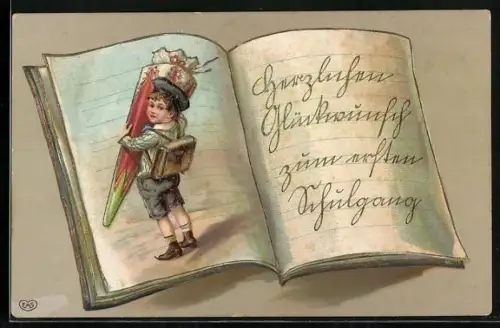 Herzlichen
Glückwunsch
zum ersten
Schulgang
EAS